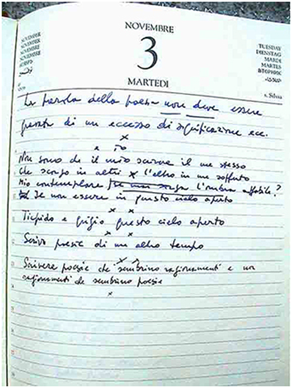 NOVEMBRE
3
MARTEDI
NOVEMBER
NOVEMBRE
NOVIEMBRE
NOVEMBRO
TUESDAY
DIENSTAG
MARDI
MARTES
ВТОРНИК
s. Silvia
La parola della poesia non deve essere
di un eccesso di significazione ecc.
Non sono che il mio scavare il me stesso
che scavo in altri l'altro in me
Mio contemplare l'ombra
Se non essere in questo cielo aperto
Tiepido e grigio questo cielo aperto
Scrivo poesie di un altro tempo
Scrivere poesie che sembrino ragionamenti e non
ragionamenti che sembrino poesie